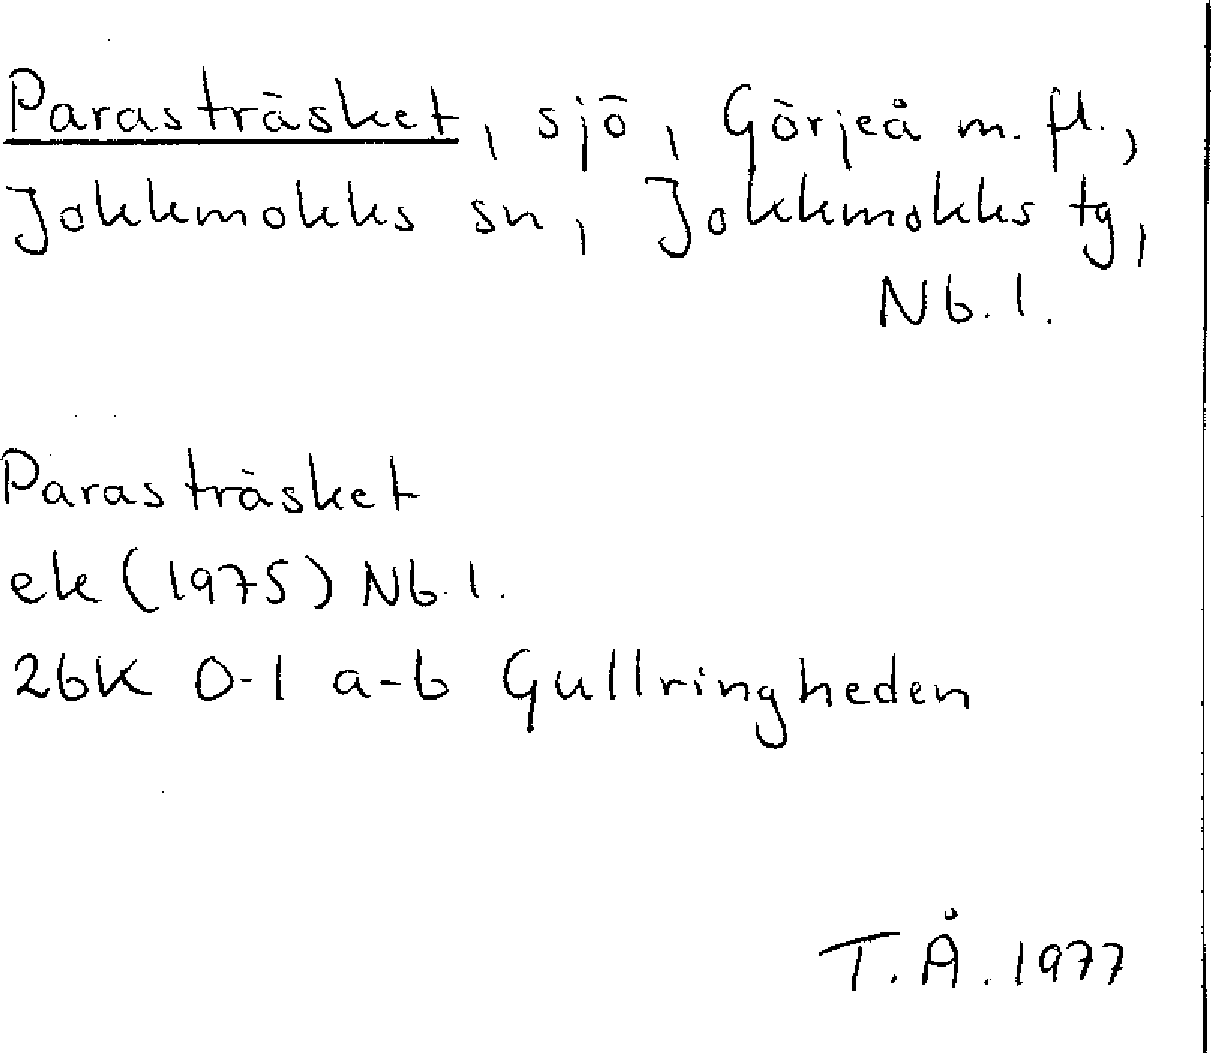 Parasträsket, sjö, Görjeå m. fl.,
Jokkmokks sn, Jokkmokks tg,
Nb. l.
Parasträsket
ek (1975) Nb. l.
26K 0-1 a-b Gullringheden
T.Å. 1977